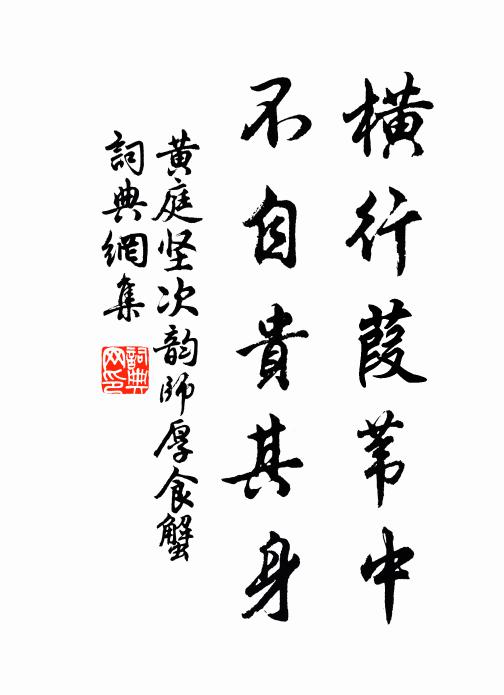 横行葭苇中
不自貴其身
黄庭坚次韵師厚食蟹
詞典網集
詞典網印